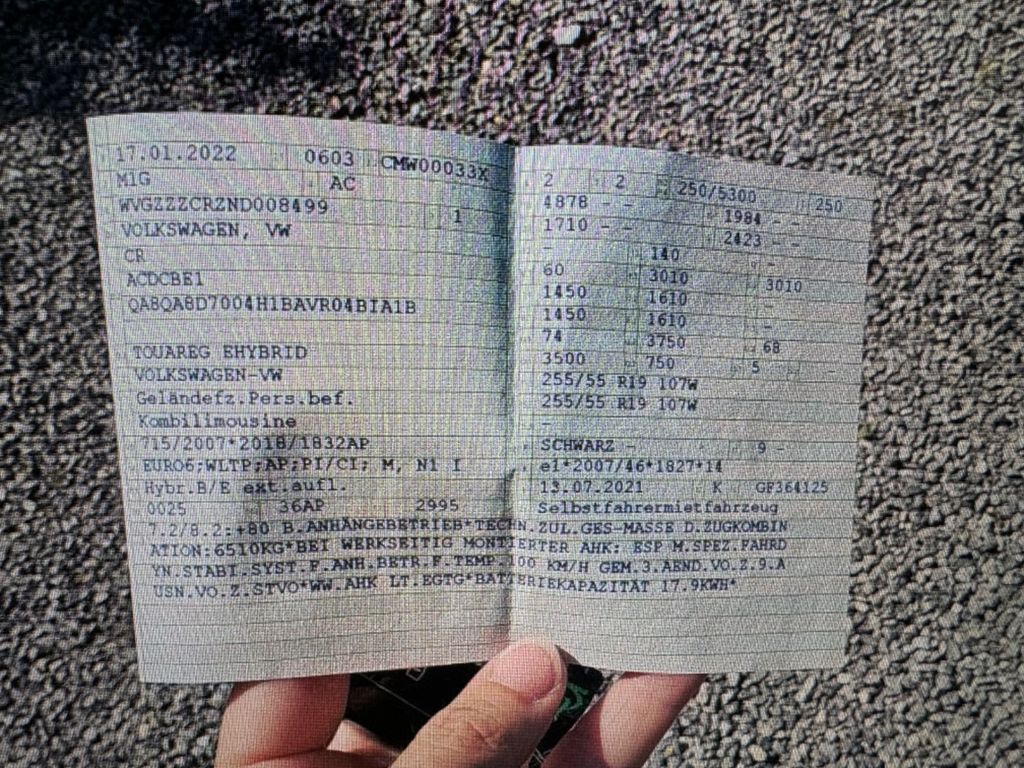 17.01.2022 0603 CMW00033X
M1G AC
WVGZZZCRZND008499 1
VOLKSWAGEN, VW
CR
ACDCBE1
QA8QA8D7004H1BAVR04BIA1B
TOUAREG EHYBRID
VOLKSWAGEN-VW
Geländefz.Pers.bef.
Kombilimousine
715/2007*2018/1832AP
EURO6;WLTP;AP;PI/CI; M, N1 I
Hybr.B/E ext.aufl.
0025 36AP 2995
2 2 250/5300 250
4878 - - 1984 - -
1710 - - 2423 - -
- 140 -
60 3010 3010
1450 1610 -
1450 1610 -
74 3750 68
3500 750 5 -
255/55 R19 107W
255/55 R19 107W
-
SCHWARZ - 9 -
e1*2007/46*1827*14
13.07.2021 K GF364125
Selbstfahrermietfahrzeug
7.2/8.2:+80 B.ANHÄNGEBETRIEB*TECHN.ZUL.GES-MASSE D.ZUGKOMBIN
ATION:6510KG*BEI WERKSEITIG MONTIERTER AHK: ESP M.SPEZ.FAHRD
YN.STABI.SYST.F.ANH.BETR.F.TEMP.100 KM/H GEM.3.AEND.VO.Z.9.A
USN.VO.Z.STVO*WW.AHK LT.EGTG*BATTERIEKAPAZITÄT 17.9KWH*